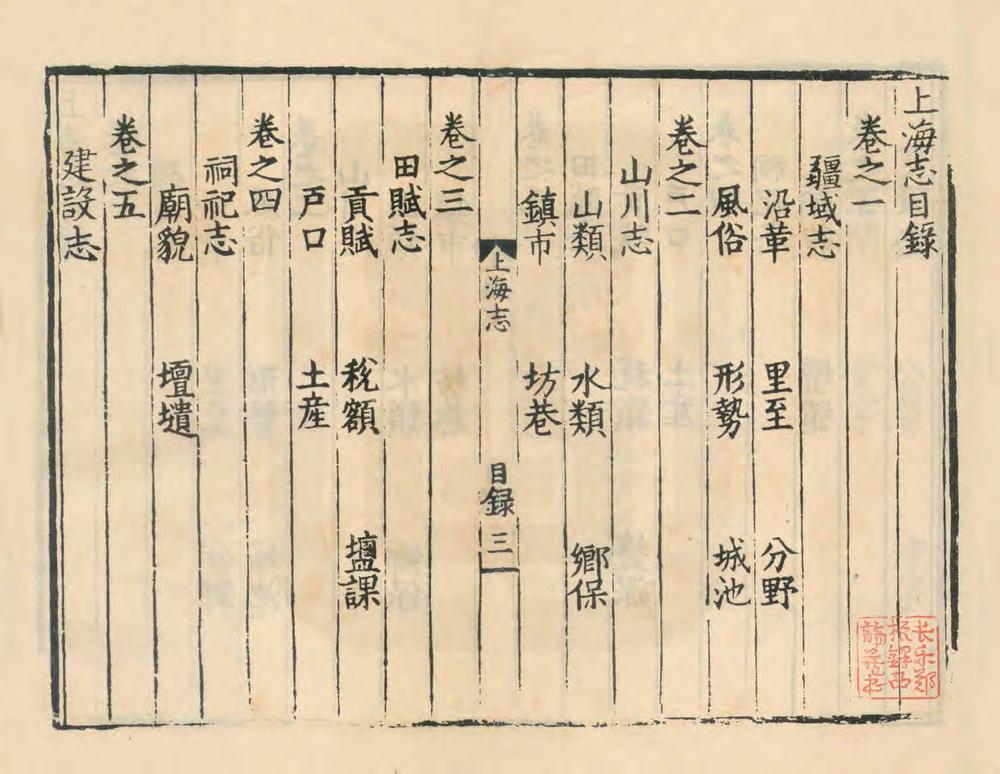 上海志目錄
卷之一
疆域志
沿革 里至 分野
風俗 形勢 城池
卷之二
山川志
山類 水類 鄉保
鎮市 坊巷
上海志 目録 三
卷之三
田賦志
貢賦 稅額 塩課
戶口 土産
卷之四
祠祀志
廟貌 壇壝
卷之五
建設志
长乐鄭
振鐸西
諦藏书